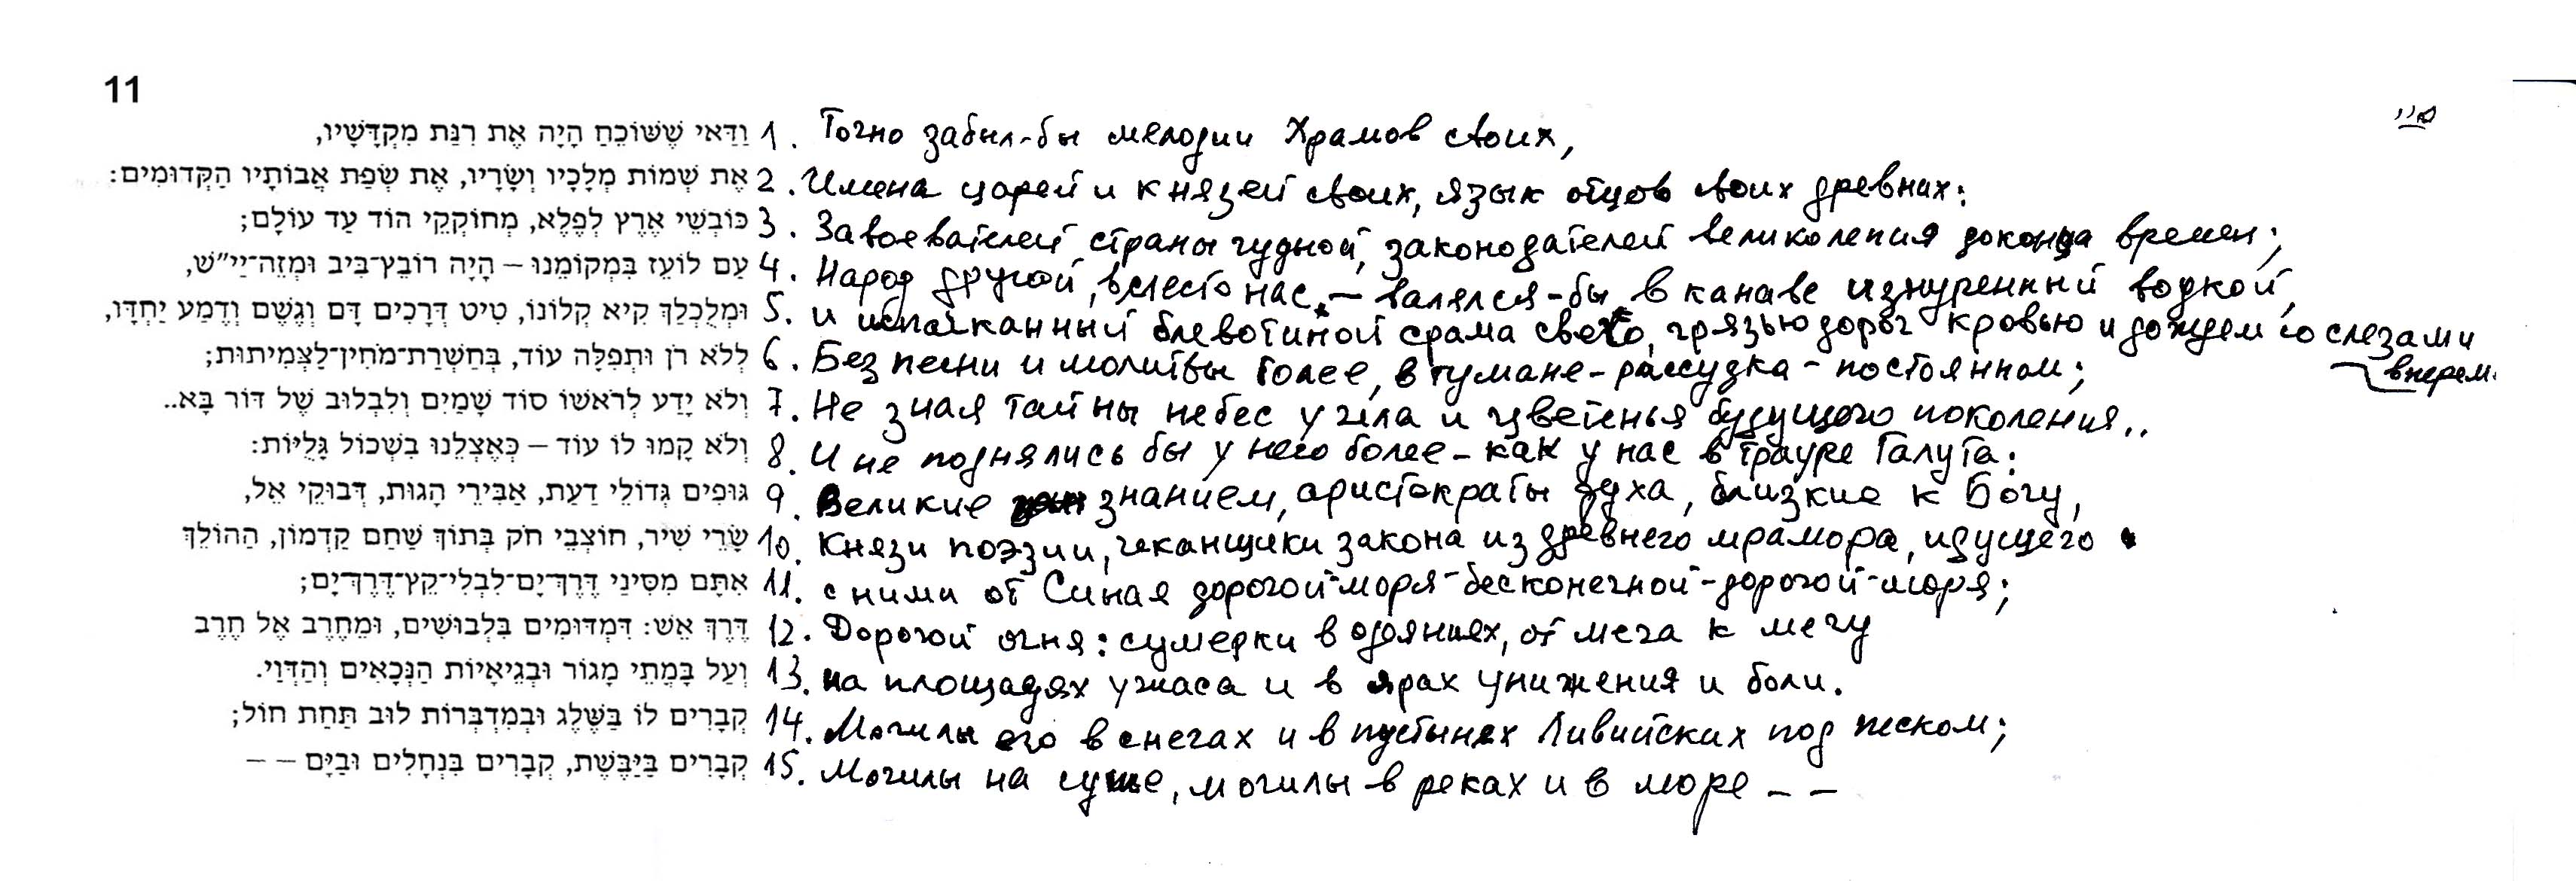 11
וַדַּאי שֶׁשּׁוֹכֵחַ הָיָה אֶת רִנַּת מִקְדָּשָׁיו, 1. Точно забыл-бы мелодии Храмов своих,
אֶת שְׁמוֹת מְלָכָיו וְשָׂרָיו, אֶת שְׂפַת אֲבוֹתָיו הַקְּדוּמִים: 2. Имена царей и князей своих, язык отцов своих древних:
כּוֹבְשֵׁי אֶרֶץ לְפֶלֶא, מְחוֹקְקֵי הוֹד עַד עוֹלָם; 3. Завоевателей страны чудной, законодателей великолепия доконца времен;
עַם לוֹעֵז בִּמְקוֹמֵנוּ – הָיָה רוֹבֵץ־בִּיב וּמְזֵה־יַי"שׁ, 4. Народ другой, вместо нас, – валялся-бы в канаве изнуренный водкой,
וּמְלֻכְלַךְ קִיא קְלוֹנוֹ, טִיט דְּרָכִים דָּם וְגֶשֶׁם וְדֶמַע יַחְדָּו, 5. и испачканный блевотиной срама своего, грязью дорог кровью и дождем со слезами
вперем.
לְלֹא רֹן וּתְפִלָּה עוֹד, בְּחַשְׁרַת־מֹחִין־לַצְּמִיתוּת; 6. Без песни и молитвы более, в тумане-рассудка-постоянном;
וְלֹא יָדַע לְרֹאשׁוֹ סוֹד שָׁמַיִם וְלִבְלוּב שֶׁל דּוֹר בָּא.. 7. Не зная тайны небес у чела и цветенья будущего поколения..
וְלֹא קָמוּ לוֹ עוֹד – כְּאֶצְלֵנוּ בִּשְׁכוֹל גָּלֻיּוֹת: 8. И не поднялись бы у него более – как у нас в трауре Галута:
גּוּפִים גְּדוֹלֵי דַעַת, אַבִּירֵי הָגוּת, דְּבוּקֵי אֵל, 9. Великие знанием, аристократы духа, близкие к Богу,
שָׂרֵי שִׁיר, חוֹצְבֵי חֹק בְּתוֹךְ שַׁחַם קַדְמוֹן, הַהוֹלֵךְ 10. Князи поэзии, чеканщики закона из древнего мрамора, идущего
אִתָּם מִסִּינַי דֶּרֶךְ־יָם־לִבְלִי־קֵץ־דֶּרֶךְ־יָם; 11. с ними от Синая дорогой-моря-бесконечной-дорогой-моря;
דֶּרֶךְ אֵשׁ: דִּמְדּוּמִים בִּלְבוּשִׁים, וּמֵחֶרֶב אֶל חֶרֶב 12. Дорогой огня: сумерки в одяниях, от меча к мечу
וְעַל בָּמֳתֵי מָגוֹר וּבְגֵיאָיוֹת הַנְּכָאִים וְהַדְּוַי. 13. на площадях ужаса и в ярах унижения и боли.
קְבָרִים לוֹ בַּשֶּׁלֶג וּבְמִדְבְּרוֹת לוּב תַּחַת חוֹל; 14. Могилы его в снегах и в пустынях Ливийских под песком;
קְבָרִים בַּיַּבֶּשֶׁת, קְבָרִים בִּנְחָלִים וּבַיָּם – – 15. Могилы на суше, могилы в реках и в море – –